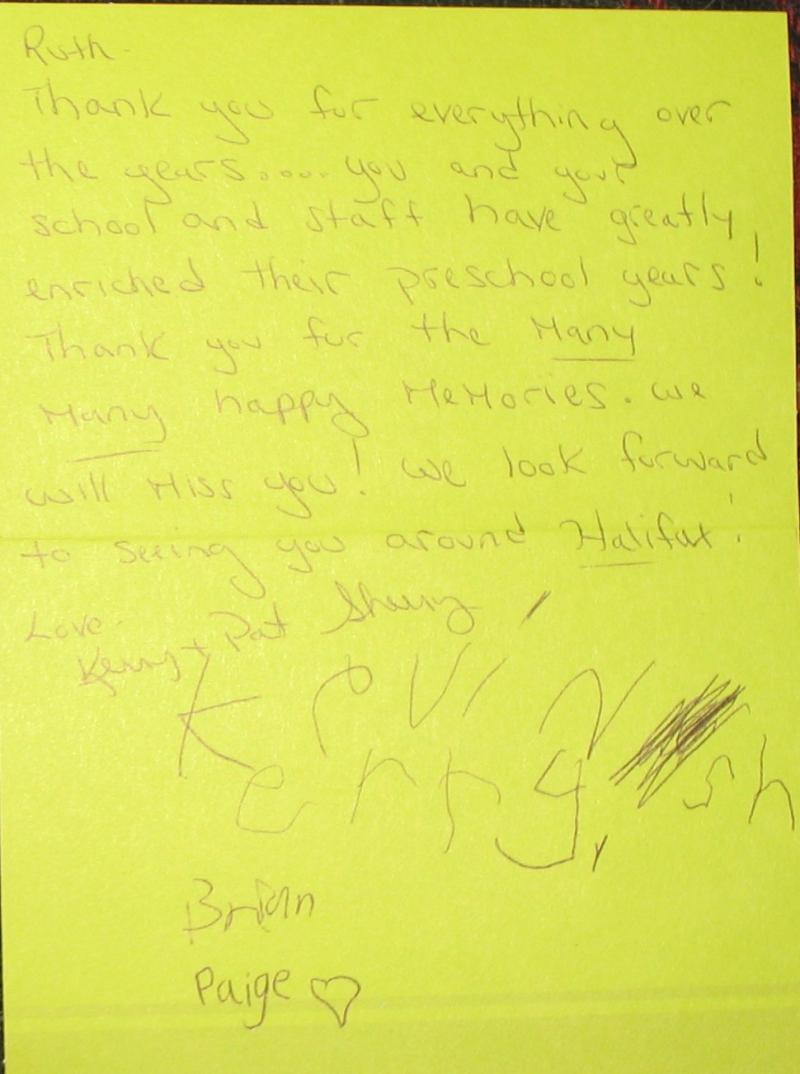 Ruth-
Thank you for everything over
the years.... you and your
school and staff have greatly
enriched their preschool years!
Thank you for the Many
Many happy MeMories. we
will Miss you! we look forward
to seeing you around Halifax!
Love-
Kerry + Pat
Kevin
erry, sh
Brian
Paige ♡